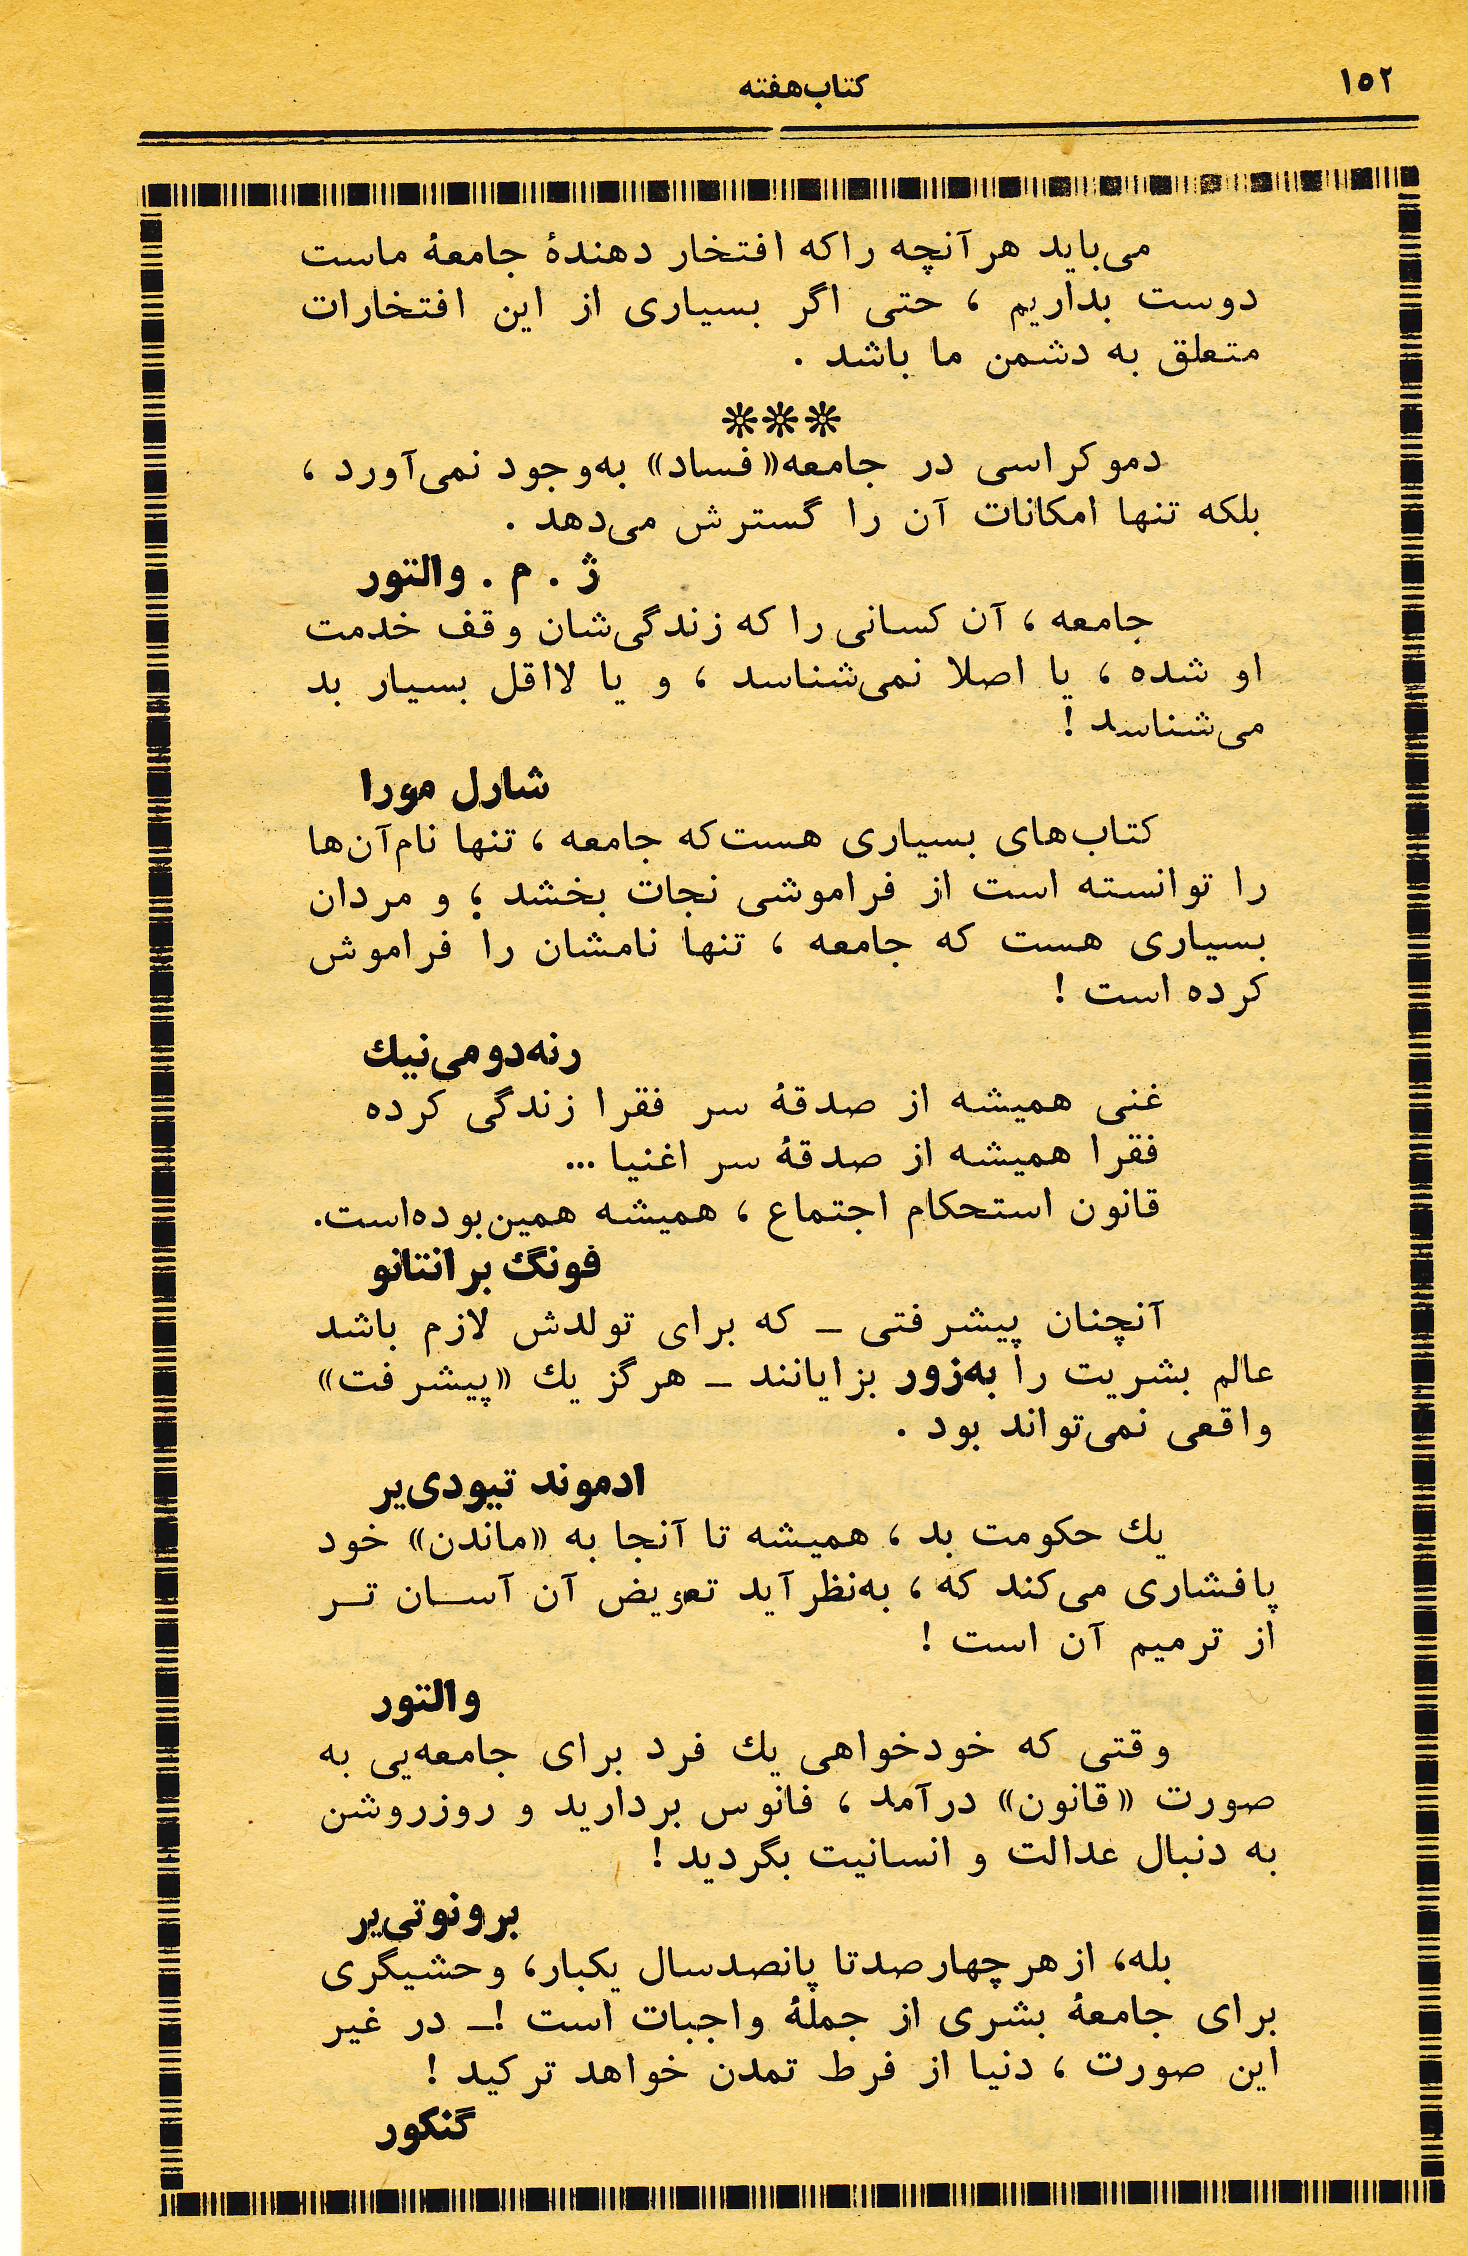 ۱۵۲
کتاب‌هفته
می‌باید هرآنچه راکه افتخار دهندهٔ جامعهٔ ماست
دوست بداریم ، حتی اگر بسیاری از این افتخارات
متعلق به دشمن ما باشد .
***
دموکراسی در جامعه«فساد» به‌وجود نمی‌آورد ،
بلکه تنها امکانات آن را گسترش می‌دهد .
ژ . م . والتور
جامعه ، آن کسانی را که زندگی‌شان وقف خدمت
او شده ، یا اصلا نمی‌شناسد ، و یا لااقل بسیار بد
می‌شناسد !
شارل مورا
کتاب‌های بسیاری هست‌که جامعه ، تنها نام‌آن‌ها
را توانسته است از فراموشی نجات بخشد ؛ و مردان
بسیاری هست که جامعه ، تنها نامشان را فراموش
کرده است !
رنه‌دومی‌نیك
غنی همیشه از صدقهٔ سر فقرا زندگی کرده
فقرا همیشه از صدقهٔ سر اغنیا ...
قانون استحکام اجتماع ، همیشه همین‌بوده‌است.
فونگ برانتانو
آنچنان پیشرفتی ــ که برای تولدش لازم باشد
عالم بشریت را به‌زور بزایانند ــ هرگز یك «پیشرفت»
واقعی نمی‌تواند بود .
ادموند تیودی‌یر
یك حکومت بد ، همیشه تا آنجا به «ماندن» خود
پافشاری می‌کند که ، به‌نظرآید تعویض آن آسان تر
از ترمیم آن است !
والتور
وقتی که خودخواهی یك فرد برای جامعه‌یی به
صورت «قانون» درآمد ، فانوس بردارید و روزروشن
به دنبال عدالت و انسانیت بگردید !
برونوتی‌یر
بله، ازهرچهارصدتا پانصدسال یکبار، وحشیگری
برای جامعهٔ بشری از جملهٔ واجبات است !ــ در غیر
این صورت ، دنیا از فرط تمدن خواهد ترکید !
گنکور